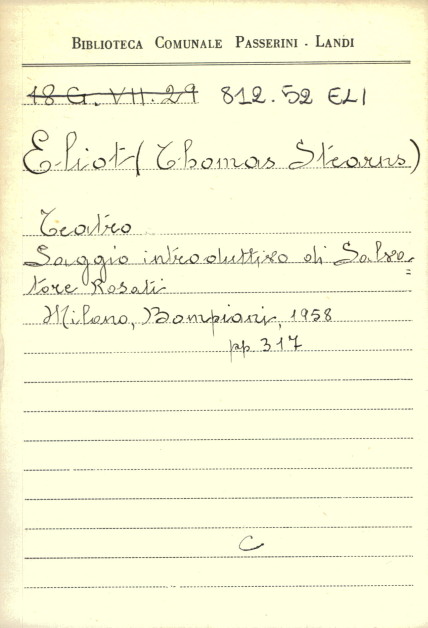 BIBLIOTECA COMUNALE PASSERINI - LANDI
18 G. VII. 29 812.52 ELI
Eliot (Thomas Stearns)
Teatro
Saggio introduttivo di Salva=
tore Rosati
Milano, Bompiani, 1958
pp. 317
C